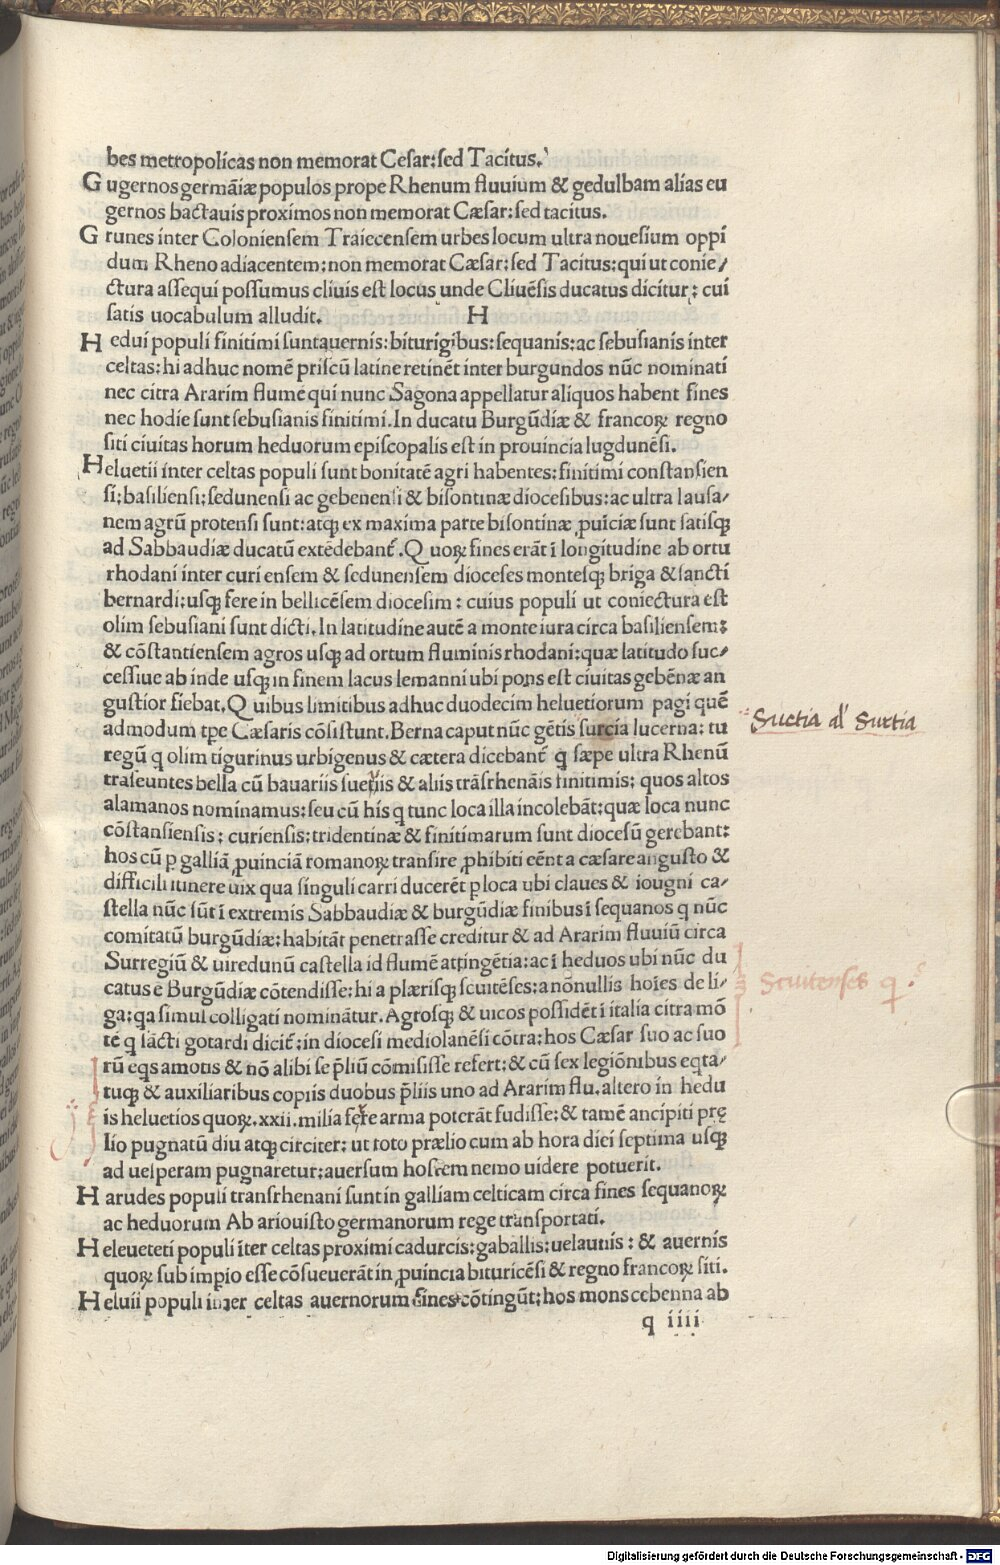 bes metropolicas non memorat Cesar: sed Tacitus.
Gugernos germãiæ populos prope Rhenum fluuium & gedulbam alias eu
gernos bactauis proximos non memorat Cæsar: sed tacitus.
Grunes inter Coloniensem Traiecensem urbes locum ultra nouesium oppi
dum Rheno adiacentem: non memorat Cæsar: sed Tacitus: qui ut conie/
ctura assequi possumus cliuis est locus unde Cliuẽsis ducatus dicitur: cui
satis uocabulum alludit. H
Hedui populi finitimi sunt auernis: biturigibus: sequanis: ac sebusianis inter
celtas: hi adhuc nomẽ priscũ latine retinẽt inter burgundos nũc nominati
nec citra Ararim flumẽ qui nunc Sagona appellatur aliquos habent fines
nec hodie sunt sebusianis finitimi. In ducatu Burgũdiæ & francoꝝ regno
siti ciuitas horum heduorum episcopalis est in prouincia lugdunẽsi.
Heluetii inter celtas populi sunt bonitatẽ agri habentes: finitimi constansien
si: basiliensi: sedunensi ac gebenensi & bisontinæ diocesibus: ac ultra lausa/
nem agrũ protensi sunt: atqꝫ ex maxima parte bisontinæ ꝓuĩciæ sunt satisqꝫ
ad Sabbaudiæ ducatũ extẽdebant̃. Quoꝝ fines erãt ĩ longitudine ab ortu
rhodani inter curiensem & sedunensem dioceses montesqꝫ briga & sancti
bernardi: usqꝫ fere in bellicẽsem diocesim: cuius populi ut coniectura est
olim sebusiani sunt dicti. In latitudine autẽ a monte iura circa basiliensem:
& cõstantiensem agros usqꝫ ad ortum fluminis rhodani: quæ latitudo suc/
cessiue ab inde usqꝫ in finem lacus lemanni ubi pons est ciuitas gebẽnæ an
gustior fiebat. Quibus limitibus adhuc duodecim heluetiorum pagi quẽ
admodum tp̃e Cæsaris cõsistunt. Berna caput nũc gẽtis surcia lucerna: tu
regũ q olim tigurinus urbigenus & cætera dicebant̃ q̃ sæpe ultra Rhenũ
traseuntes bella cũ bauariis sueuis & aliis trãsrhenãis finitimis: quos altos
alamanos nominamus: seu cũ his q tunc loca illa incolebãt: quæ loca nunc
cõstansiensis: curiensis: tridentinæ & finitimarum sunt diocesũ gerebant:
hos cũ p galliã ꝓuinciã romanoꝝ transire ꝓhibiti eẽnt a cæsare angusto &
difficili itinere uix qua singuli carri ducerẽt p loca ubi claues & iougni ca/
stella nũc sũt ĩ extremis Sabbaudiæ & burgũdiæ finibus ĩ sequanos q nũc
comitatũ burgũdiæ: habitãt penetrasse creditur & ad Ararim fluuiũ circa
Surregiũ & uiredunũ castella id flumẽ attingẽtia: ac ĩ heduos ubi nũc du
catus ẽ Burgũdiæ cõtendisse: hi a plærisqꝫ scuitẽses: a nõnullis hoĩes de li/
ga: qa simul colligati nominãtur. Agrosqꝫ & uicos possidẽt ĩ italia citra mõ
tẽ q sãcti gotardi dicit̃: in diocesi mediolanẽsi cõtra: hos Cæsar suo ac suo
rũ eqs amotis & nõ alibi se p̃liũ cõmisisse refert: & cũ sex legiõnibus eqta/
tuqꝫ & auxiliaribus copiis duobus p̃liis uno ad Ararim flu. altero in hedu
is heluetios quoꝝ. xxii. milia fere arma poterãt fudisse: & tamẽ ancipiti prę
lio pugnatũ diu atqꝫ circiter: ut toto prælio cum ab hora diei septima usqꝫ
ad uesperam pugnaretur: auersum hostem nemo uidere potuerit.
Harudes populi transrhenani sunt in galliam celticam circa fines sequanoꝝ
ac heduorum Ab ariouisto germanorum rege transportati.
Heleueteti populi ĩter celtas proximi cadurcis: gaballis: uelaunis: & auernis
quoꝝ sub impio esse cõsueuerãt in ꝓuincia bituricẽsi & regno francoꝝ siti.
Heluii populi inter celtas auernorum fines cõtingũt: hos mons cebenna ab
q iiii
Suctia al' Suxtia
Scuitenses q.
Digitalisierung gefördert durch die Deutsche Forschungsgemeinschaft - DFG